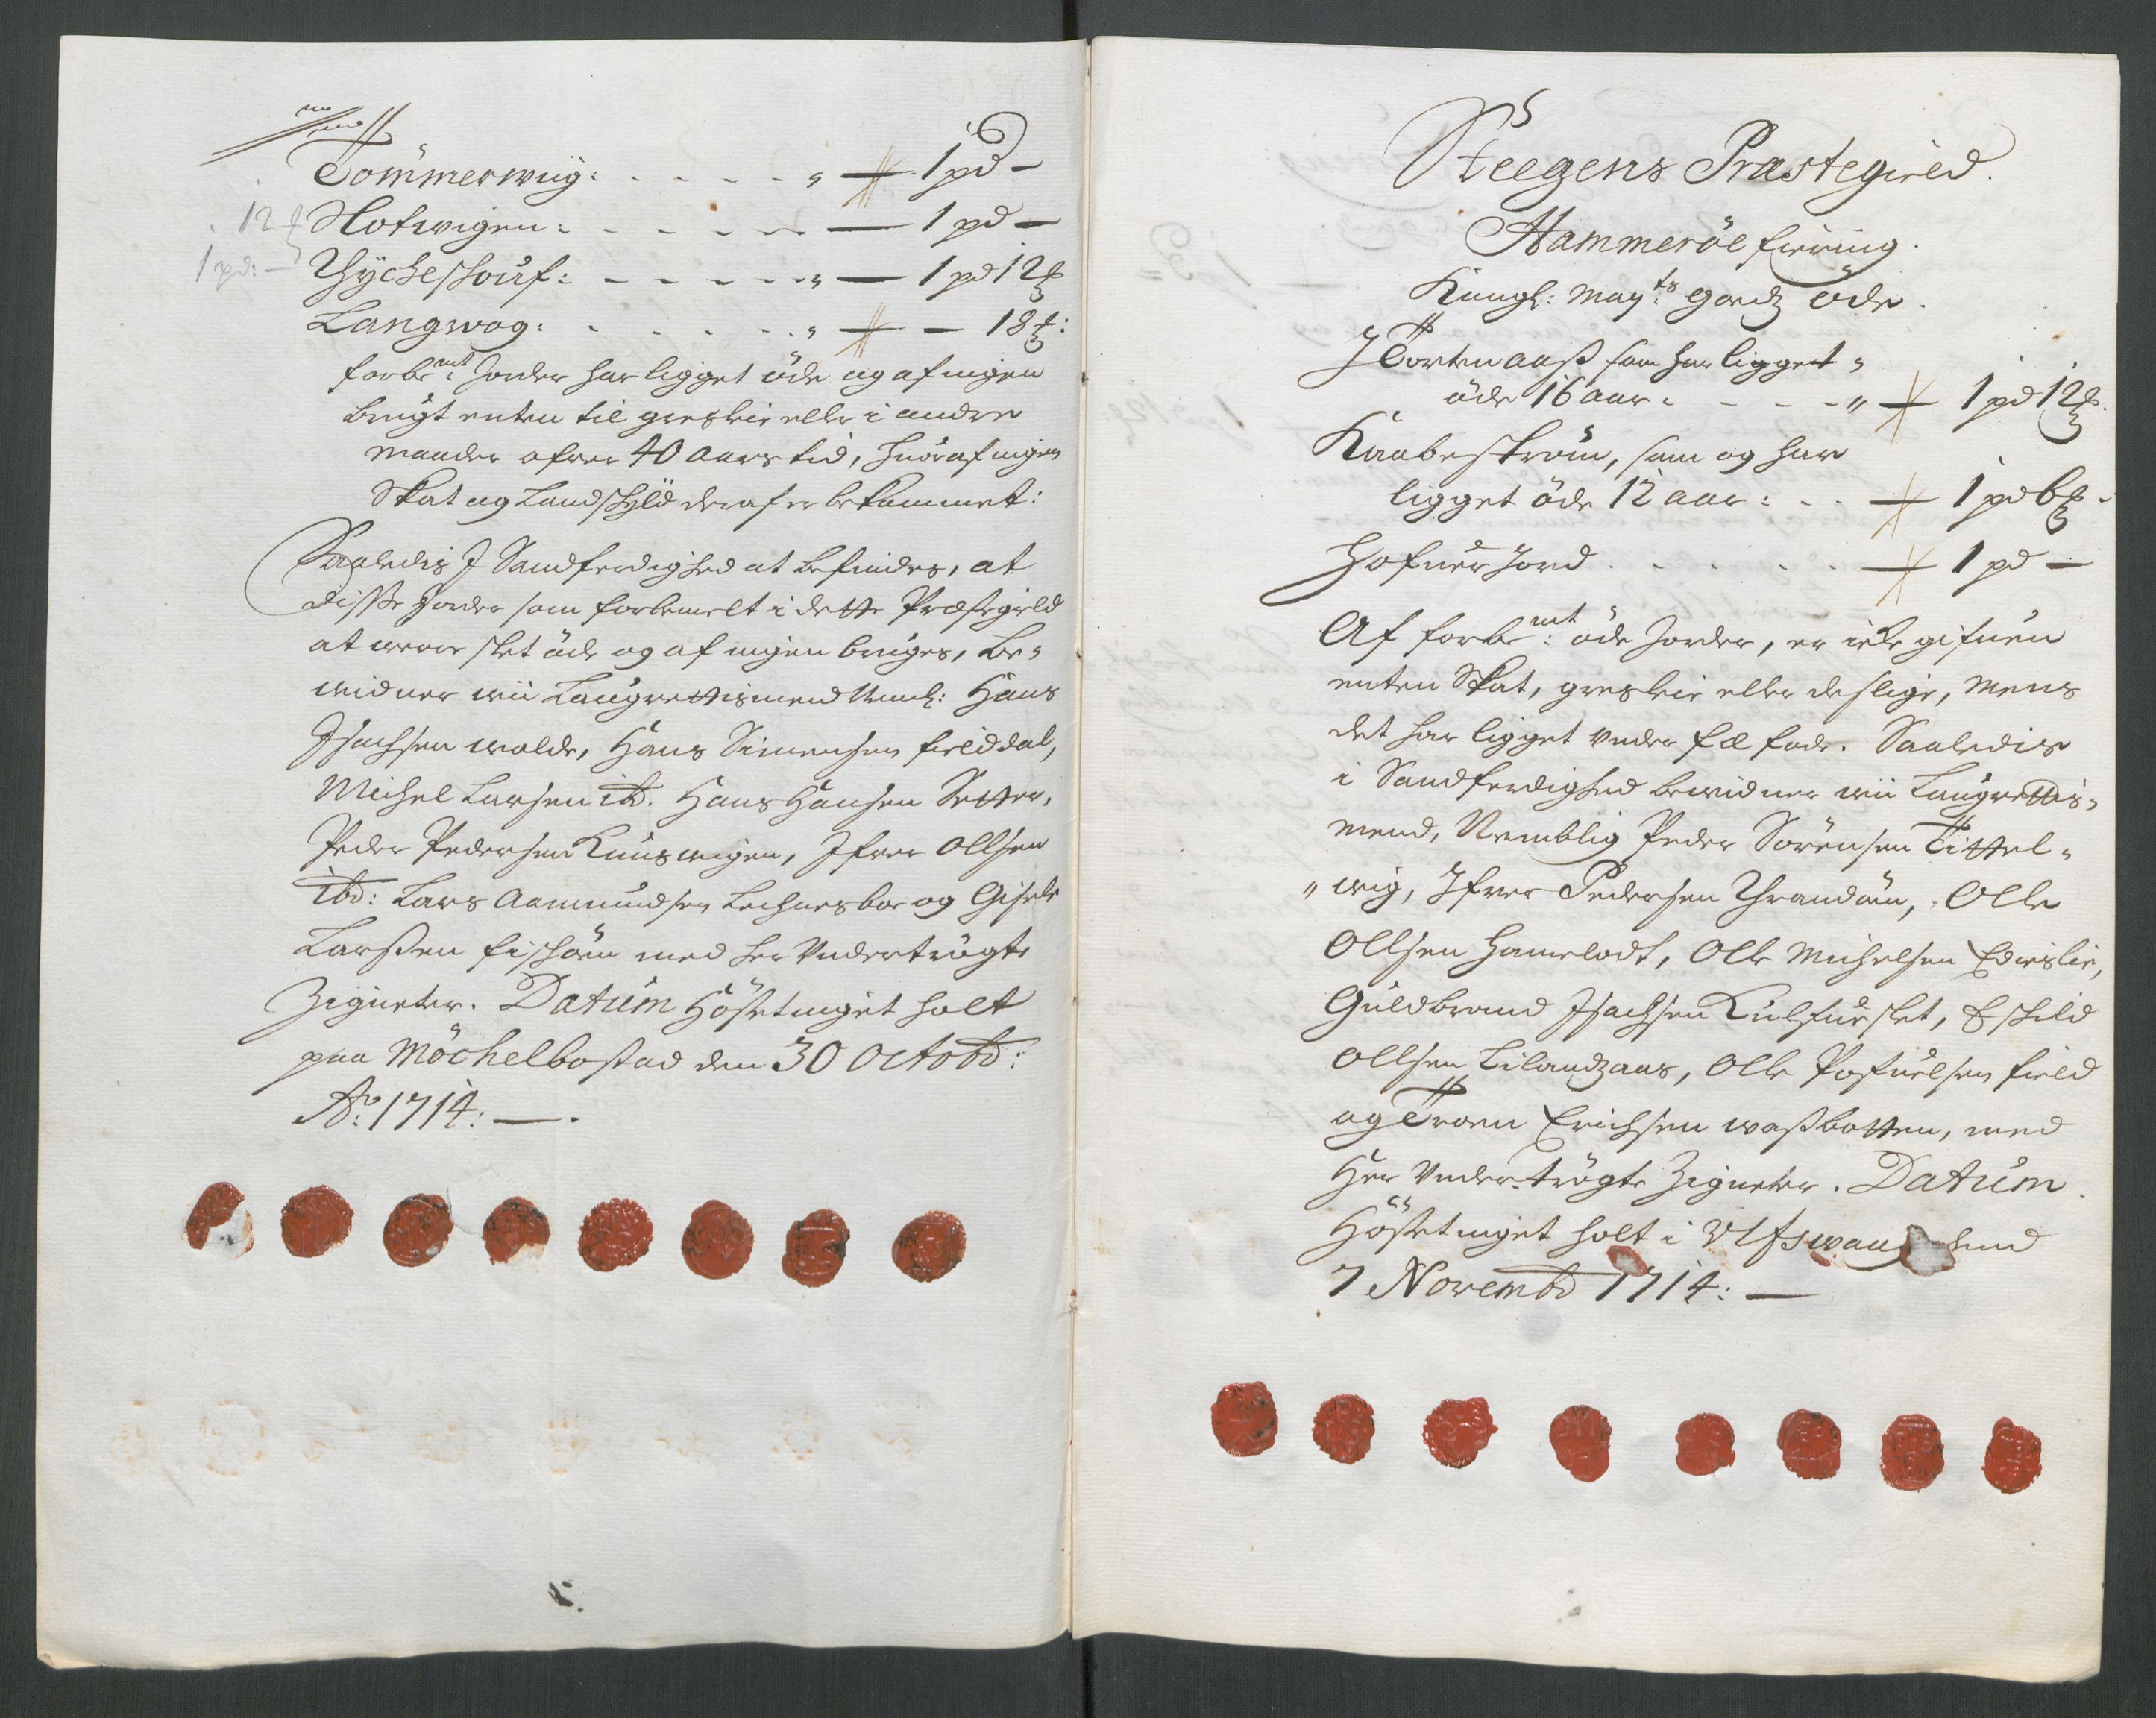 Tömmerwiig: - - - - - „ — 1 pd —
12 ℔ Hotwigen: - - - - - — 1 pd —
1 pd: — Thychessouf: - - - - - „ — 1 pd 12 ℔
Langwog: - - - - - „ — — 18 ℔:
forbemt: Jorder har ligget öde og af ingen
brugt enten til græsleie eller i andre
maader ofver 40 aars tid, huoraf ingen
Skat og Landschyld deraf er bekommet:
Saaledis I Sandferdighed at befindes, at
disse Jorder som forbemelt i dette Præstegield
at were slet öde og af ingen bruges, be„
widner wii Laugrettismend Neml: Hans
Isachsen wolde, Hans Simensen fielddal,
Michel Larsen ibd. Hans Hansen Setter,
Peder Pedersen Kuuswigen, Ifver Ollsen
ibd: Lars Aamundsen Lechnesbor og Gisele
Larsen fischöen med her Undertrögte
Zigneter. Datum Höstetinget holt
paa Möchelbostad den 30 Octobr:
Ao: 1714: —.
Steegens Præstegield.
Hammeröe fiering.
Kongl: Mayts: Gordz öde.
I Torten aass som har ligget „
öde 16 aar: - - - - „ — 1 pd 12 ℔.
Kaabeström, som og har
ligget öde 12 aar: - - — 1 pd 6 ℔ -
Hofner Jord - - - - - — 1 pd —
Af forbemt: öde Jorder, er icke gifuen
enten Skat, græsleie eller deslige, mens
det har ligget under fæ fode. Saaledis
i Sandferdighed bewidner wii Laugrettis„
mend, Nemblig Peder Sörensen Tittel„
„wig, Ifver Pedersen Thranöen, Olle
Ollsen Hamelodt, Olle Michelsen Edieslie,
Guldbrand Isachsen Kulfueslet, Eschild
Ollsen Lilandzaas, Olle Pofuelsen field
og Troen Erichsen wassbotten, med
Her Undertrögte Zigneter. Datum
Höstetinget holt i Ulfswaag dend
7 Novembr 1714: —